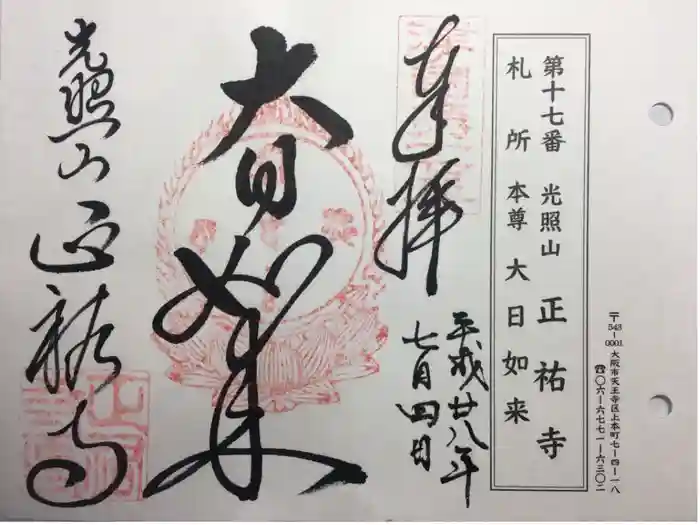 第十七番 光照山 正祐寺
札所 本尊 大日如来
〒543-0001 大阪市天王寺区上本町七-四-一八
☎〇六-六七七一-六三〇二
奉拝
平成廿八年
七月四日
大日如来
光照山正祐寺